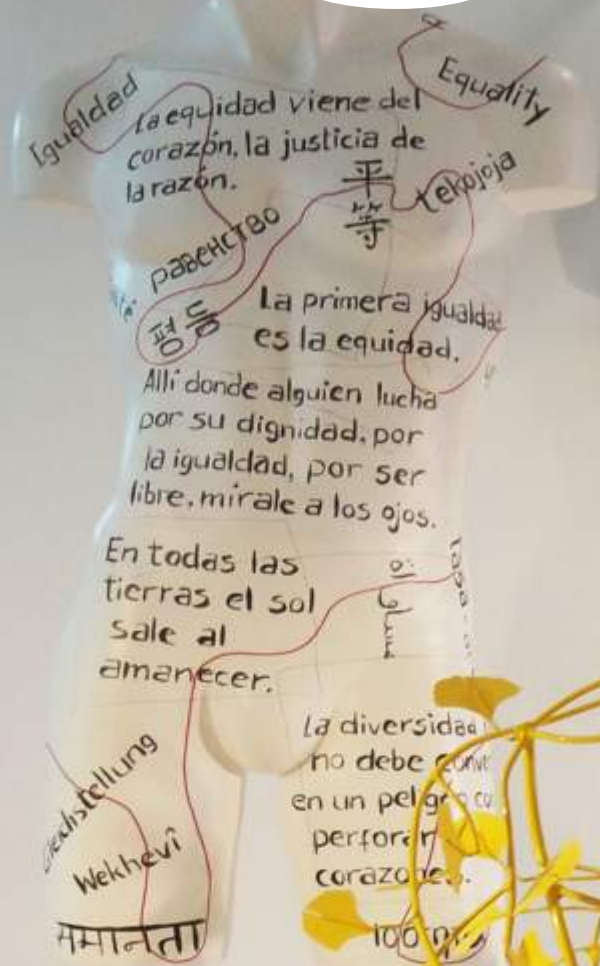 Igualdad
Equality
La equidad viene del
corazón, la justicia de
la razón.
平等
tekojoja
равенство
평등
La primera igualdad
es la equidad.
Allí donde alguien lucha
por su dignidad, por
la igualdad, por ser
libre, mírale a los ojos.
En todas las
tierras el sol
sale al
amanecer.
La diversidad
no debe
en un
perforar
corazones.
Gleichstellung
Wekhevî
समानता